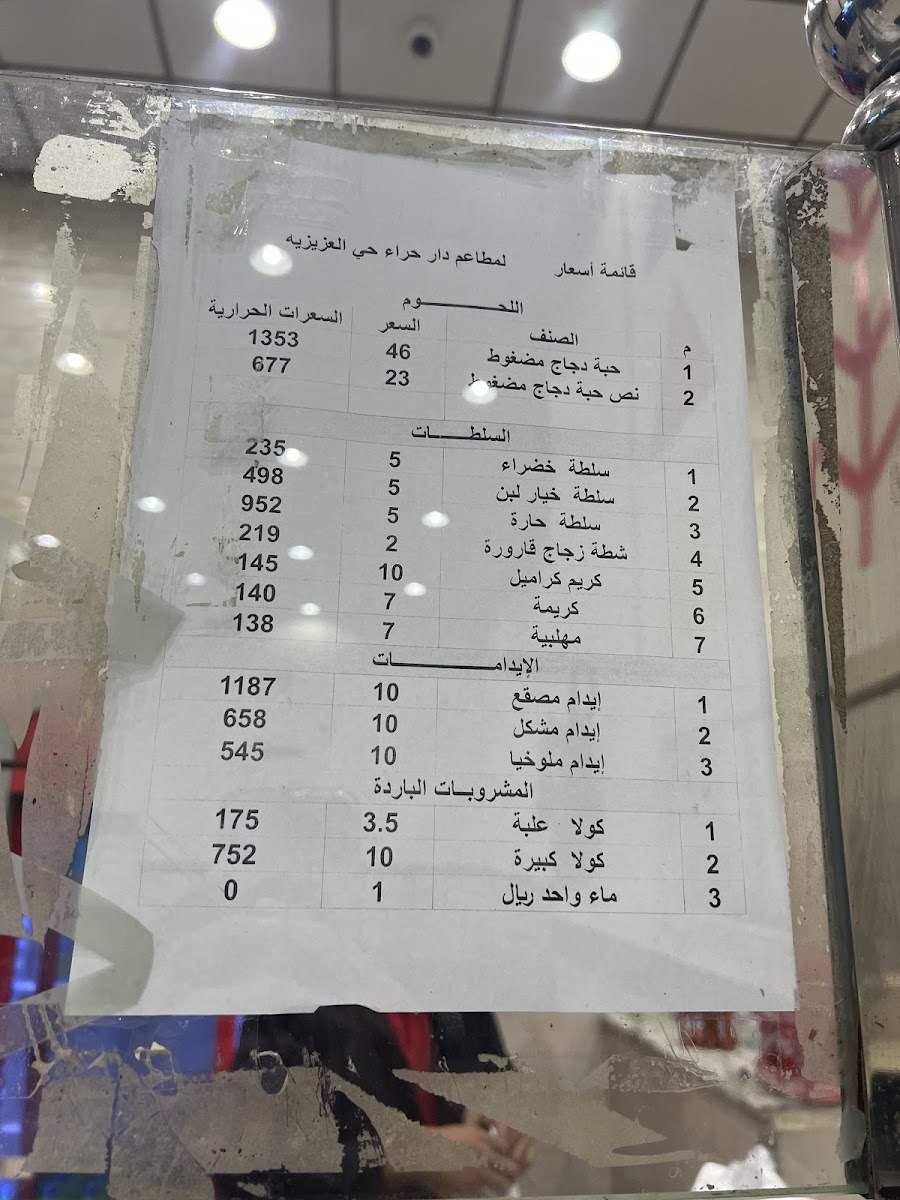 قائمة أسعار لمطاعم دار حراء حي العزيزيه
اللحـــــــــوم
م الصنف السعر السعرات الحرارية
1 حبة دجاج مضغوط 46 1353
2 نص حبة دجاج مضغوط 23 677
السلطـــــات
1 سلطة خضراء 5 235
2 سلطة خيار لبن 5 498
3 سلطة حارة 5 952
4 شطة زجاج قارورة 2 219
5 كريم كراميل 10 145
6 كريمة 7 140
7 مهلبية 7 138
الإيدامـــــــــــات
1 إيدام مصقع 10 1187
2 إيدام مشكل 10 658
3 إيدام ملوخيا 10 545
المشروبــات الباردة
1 كولا علبة 3.5 175
2 كولا كبيرة 10 752
3 ماء واحد ريال 1 0